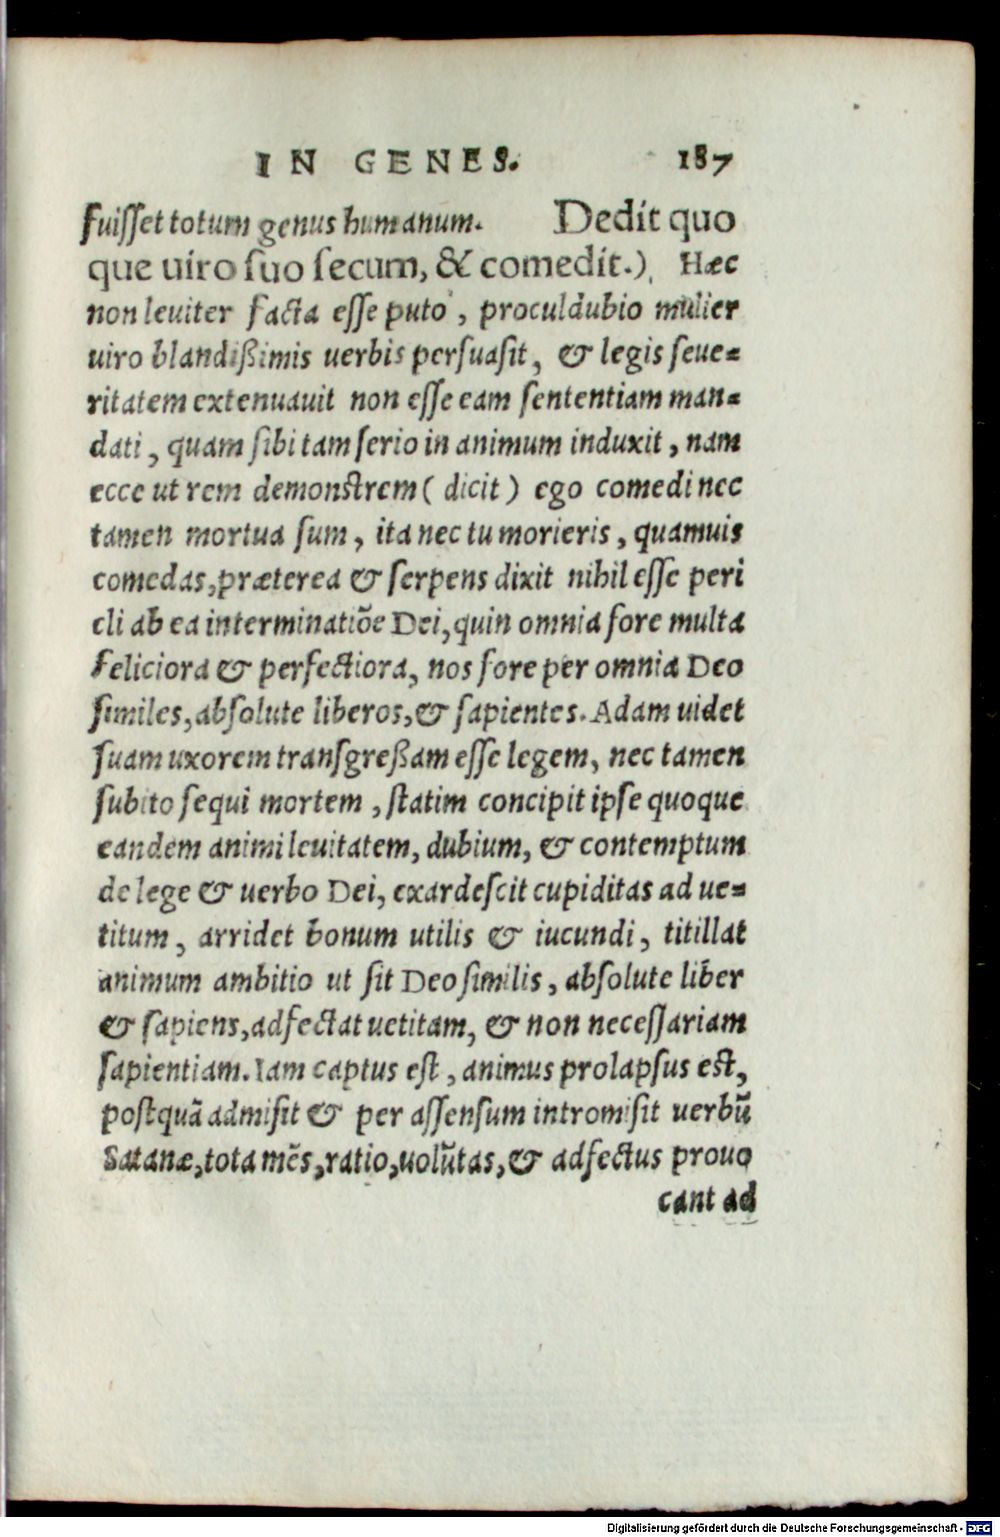 IN GENES. 187
fuisset totum genus humanum. Dedit quo
que uiro suo secum, & comedit.) Hæc
non leuiter facta esse puto, proculdubio mulier
uiro blandißimis uerbis persuasit, & legis seue=
ritatem extenuauit non esse eam sententiam man=
dati, quam sibi tam serio in animum induxit, nam
ecce ut rem demonstrem (dicit) ego comedi nec
tamen mortua sum, ita nec tu morieris, quamuis
comedas, præterea & serpens dixit nihil esse peri
cli ab ea interminatiõe Dei, quin omnia fore multa
feliciora & perfectiora, nos fore per omnia Deo
similes, absolute liberos, & sapientes. Adam uidet
suam uxorem transgreßam esse legem, nec tamen
subito sequi mortem, statim concipit ipse quoque
eandem animi leuitatem, dubium, & contemptum
de lege & uerbo Dei, exardescit cupiditas ad ue=
titum, arridet bonum utilis & iucundi, titillat
animum ambitio ut sit Deo similis, absolute liber
& sapiens, adfectat uetitam, & non necessariam
sapientiam. Iam captus est, animus prolapsus est,
postquã admisit & per assensum intromisit uerbũ
Satanæ, tota mẽs, ratio, uolũtas, & adfectus prouo
cant ad
Digitalisierung gefördert durch die Deutsche Forschungsgemeinschaft - DFG